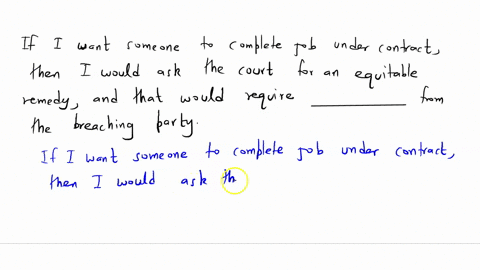 If I want someone to complete job under contract,
then I would ask the court for an equitable
remedy, and that would require __________ from
the breaching party.
If I want someone to complete job under contract,
then I would ask th